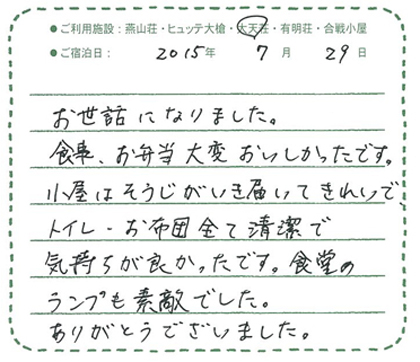 ●ご利用施設：燕山荘・ヒュッテ大槍・大天荘・有明荘・合戦小屋
●ご宿泊日： 2015年 7月 29日
お世話になりました。
食事、お弁当大変おいしかったです。
小屋はそうじがいき届いてきれいで、
トイレ・お布団全て清潔で
気持ちが良かったです。食堂の
ランプも素敵でした。
ありがとうございました。